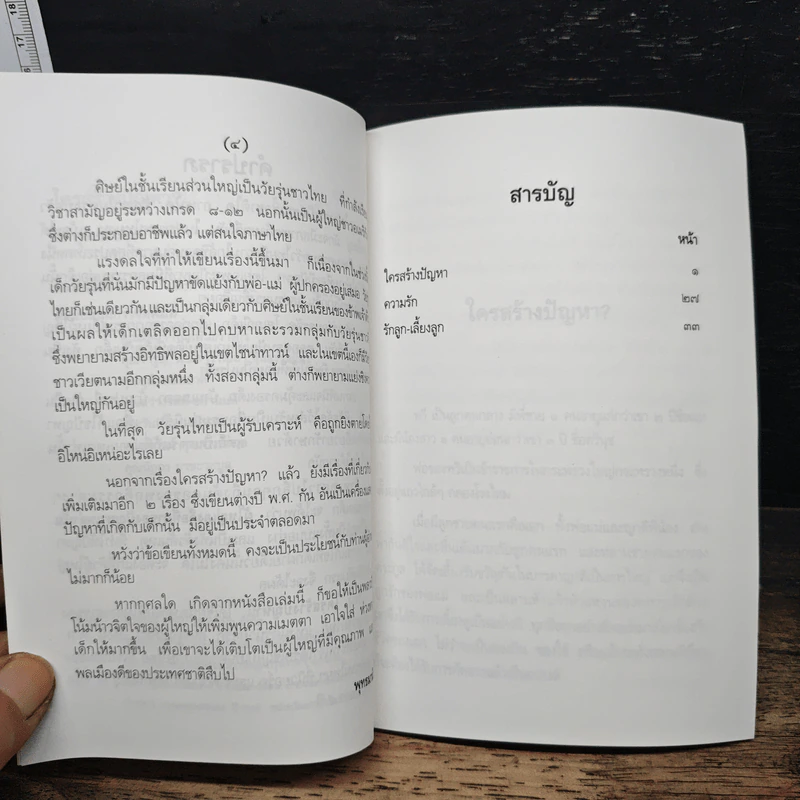 (๔)
ศิษย์ในชั้นเรียนส่วนใหญ่เป็นวัยรุ่นชาวไทย ที่กำลังเรียน
วิชาสามัญอยู่ระหว่างเกรด ๘-๑๒ นอกนั้นเป็นผู้ใหญ่ชาวอเมริกัน
ซึ่งต่างก็ประกอบอาชีพแล้ว แต่สนใจภาษาไทย
แรงดลใจที่ทำให้เขียนเรื่องนี้ขึ้นมา ก็เนื่องจากในช่วงนั้น
เด็กวัยรุ่นที่นั่นมักมีปัญหาขัดแย้งกับพ่อ-แม่ ผู้ปกครองอยู่เสมอ
ไทยก็เช่นเดียวกัน และเป็นกลุ่มเดียวกับศิษย์ในชั้นเรียนของข้าพเจ้า
เป็นผลให้เด็กเตลิดออกไปคบหาและรวมกลุ่มกับวัยรุ่นชาว
ซึ่งพยายามสร้างอิทธิพลอยู่ในเขตไชน่าทาวน์ และในเขตนี้เองก็มี
ชาวเวียตนามอีกกลุ่มหนึ่ง ทั้งสองกลุ่มนี้ ต่างก็พยายามแย่งชิง
เป็นใหญ่กันอยู่
ในที่สุด วัยรุ่นไทยเป็นผู้รับเคราะห์ คือถูกยิงตายโดยไม่
อิโหน่อิเหน่อะไรเลย
นอกจากเรื่องใครสร้างปัญหา? แล้ว ยังมีเรื่องที่เกี่ยวกับ
เพิ่มเติมมาอีก ๒ เรื่อง ซึ่งเขียนต่างปี พ.ศ. กัน อันเป็นเครื่อง
ปัญหาที่เกิดกับเด็กนั้น มีอยู่เป็นประจำตลอดมา
หวังว่าข้อเขียนทั้งหมดนี้ คงจะเป็นประโยชน์กับท่านผู้อ่าน
ไม่มากก็น้อย
หากกุศลใด เกิดจากหนังสือเล่มนี้ ก็ขอให้เป็นพลัง
โน้มน้าวจิตใจของผู้ใหญ่ให้เพิ่มพูนความเมตตา เอาใจใส่ ห่วง
เด็กให้มากขึ้น เพื่อเขาจะได้เติบโตเป็นผู้ใหญ่ที่มีคุณภาพ
พลเมืองดีของประเทศชาติสืบไป
สารบัญ
หน้า
ใครสร้างปัญหา ๑
ความรัก ๒๗
รักลูก-เลี้ยงลูก ๓๓
18
17